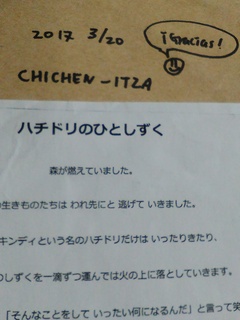 2017 3/20
¡Gracias!
CHICHEN-ITZA
ハチドリのひとしずく
森が燃えていました。
生きものたちは われ先にと 逃げて いきました。
キンディ という名のハチドリだけは いったりきたり、
しずくを一滴ずつ運んでは火の上に落としていきます。
「そんなことをして いったい何になるんだ」と言って笑